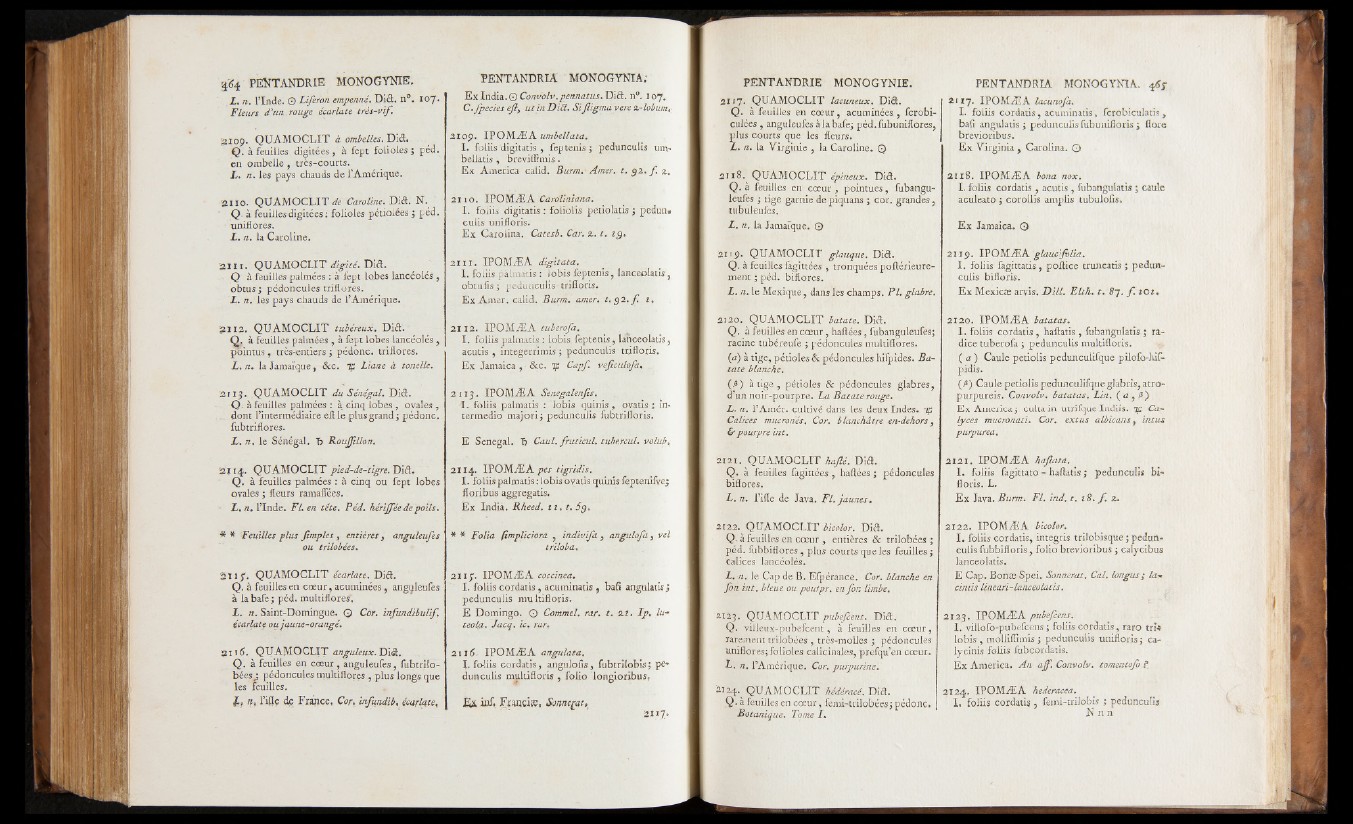 464 PENTANDRIE MONOGYNIE.
L. n. l'Inde. ☉ Liseron empenné. Dict. n°. 107.
Fleurs d'un rouge écarlate très-vif.
2109. QUAMOCLIT à ombelles. Dict.
Q. à feuilles digitées, à sept folioles; péd.
en ombelle, très-courts.
L. n. les pays chauds de l'Amérique.
2110. QUAMOCLIT de Caroline. Dict. N.
Q. à feuilles digitées: folioles pétiolées; péd.
uniflores.
L. n. la Caroline.
2111. QUAMOCLIT digité. Dict.
Q. à feuilles palmées: à sept lobes lancéolés,
obtus; pédoncules triflores.
L. n. les pays chauds de l'Amérique.
2112. QUAMOCLIT tubéreux. Dict.
Q. à feuilles palmées, à sept lobes lancéolés,
pointus, très-entiers; pédonc. triflores.
L. n. la Jamaïque, &c. ♃ Liane à tonelle.
2113. QUAMOCLIT du Sénégal. Dict.
Q. à feuilles palmées: à cinq lobes, ovales,
dont l'intermédiaire est le plus grand; pédonc.
subtriflores.
L. n. le Sénégal. ♄ Roussillon.
2114. QUAMOCLIT pied-de-tigre. Dict.
Q. à feuilles palmées: à cinq ou sept lobes
ovales; fleurs ramassées.
L. n. l'Inde. Fl. en tête. Péd. hérissée de poils.
* * Feuilles plus simples, entières, anguleuses
ou trilobées.
2115. QUAMOCLIT écarlate. Dict.
Q. à feuilles en cœur, acuminées, anguleuses
à la base; péd. multiflores.
L. n. Saint-Domingue. ☉ Cor. infundibulif.
écarlate ou jaune-orangé.
2116. QUAMOCLIT anguleux. Dict.
Q. à feuilles en cœur, anguleuses, subtrilo-
bées; pédoncules multiflores, plus longs que
les feuilles.
L. n. l'isle de France. Cor. infundib. écarlate.
PENTANDRIA MONOGYNIA.
Ex India. ☉ Convolv. pennatus. Dict. n°. 107.
C. species est, ut in Dict. Si stigma vere 2-lobum.
2109. IPOMÆA umbellata.
I. foliis digitatis, septenis; pedunculis um-
bellatis, brevissimis.
Ex America calid. Burm. Amer. t. 92. f. 2.
2110. IPOMÆA Caroliniana.
I. foliis digitatis: foliolis petiolatis; pedun-
culis unifloris.
Ex Carolina. Catesb. Car. 2. t. 29.
2111. IPOMÆA digitata.
I. foliis palmatis: lobis septenis, lanceolatis,
obtusis; pedunculis trifloris.
Ex Amer. calid. Burm. amer. t. 92. f. 1.
2112. IPOMÆA tuberosa.
I. foliis palmatis: lobis septenis, lanceolatis,
acutis, integerrimis; pedunculis trifloris.
Ex Jamaica, &c. ♃ Caps. vesiculosa.
2113. IPOMÆA Senegalensis.
I. foliis palmatis: lobis quinis, ovatis: in-
termedio majori; pedunculis subtrifloris.
E Senegal. ♄ Caul. fruticul. tubercul. volub.
2114. IPOMÆA pes tigridis.
I. foliis palmatis: lobis ovatis quinis septenisve;
floribus aggregatis.
Ex India. Rheed. 11. t. 59.
* * Folia simpliciora, indivisa, angulosa, vel
triloba.
2115. IPOMÆA coccinea.
I. foliis cordatis, acuminatis, basi angulatis;
pedunculis multifloris.
E Domingo. ☉ Commel. rar. t. 21. Ip. lu-
teola. Jacq. ic. rar.
2116. IPOMÆA angulata.
I. foliis cordatis, angulosis, subtrilobis; pe-
dunculis multifloris, folio longioribus.
Ex ins. Franciæ, Sonnerat.
2117.
PENTANDRIE MONOGYNIE.
2117. QUAMOCLIT lacuneux. Dict.
Q. à feuilles en cœur, acuminées, scrobi-
culées, anguleuses à la base; péd. subuniflores,
plus courts que les fleurs.
L. n. la Virginie, la Caroline. ☉
2118. QUAMOCLIT épineux. Dict.
Q. à feuilles en cœur, pointues, subangu-
leuses; tige garnie de piquans; cor. grandes,
tubuleuses.
L. n. la Jamaïque. ☉
2119. QUAMOCLIT glauque. Dict.
Q. à feuilles sagittées, tronquées postérieure-
ment; péd. biflores.
L. n. le Mexique, dans les champs. Pl. glabre.
2120. QUAMOCLIT batate. Dict.
Q. à feuilles en cœur, hastées, subanguleuses;
racine tubéreuse; pédoncules multiflores.
(a) à tige, pétioles & pédoncules hispides. Ba-
tate blanche.
(β) à tige, pétioles & pédoncules glabres,
d'un noir-pourpre. La Batate rouge.
L. n. l'Amér. cultivé dans les deux Indes. ♃
Calices mucronés. Cor. blanchâtre en-dehors,
& pourpre int.
2121. QUAMOCLIT hasté. Dict.
Q. à feuilles sagittées, hastées; pédoncules
biflores.
L. n. l'isle de Java. Fl. jaunes.
2122. QUAMOCLIT bicolor. Dict.
Q. à feuilles en cœur, entières & trilobées;
péd. subbiflores, plus courts que les feuilles;
calices lancéolés.
L. n. le Cap de B. Espérance. Cor. blanche en
son int. bleue ou pourpr. en son limbe.
2123. QUAMOCLIT pubescent. Dict.
Q. villeux-pubescent, à feuilles en cœur,
rarement trilobées, très-molles; pédoncules
uniflores; folioles calicinales, presqu'en cœur.
L. n. l'Amérique. Cor. purpurine.
2124. QUAMOCLIT hédéracé. Dict.
Q. à feuilles en cœur, semi-trilobées; pédonc.
Botanique. Tome I.
PENTANDRIA MONOGYNIA. 465
2117. IPOMÆA lacunosa.
I. foliis cordatis, acuminatis, scrobiculatis,
basi angulatis; pedunculis subunifloris; flore
brevioribus.
Ex Virginia, Carolina. ☉
2118. IPOMÆA bona nox.
I. foliis cordatis, acutis, subangulatis; caule
aculeato; corollis amplis tubulosis.
Ex Jamaica. ☉
2119. IPOMÆA glaucifolia.
I. foliis sagittatis, postice truncatis; pedun-
culis bifloris.
Ex Mexicæ arvis. Dill. Elth. t. 87. f. 101.
2120. IPOMÆA batatas.
I. foliis cordatis, hastatis, subangulatis; ra-
dice tuberosa; pedunculis multifloris.
(a) Caule petiolis pedunculisque piloso-his-
pidis.
(β) Caule petiolis pedunculisque glabris, atro-
purpureis. Convolv. batatas. Lin. (a, β)
Ex America; culta in utrisque Indiis. ♃ Ca-
lyces mucronati. Cor. extus albicans, intus
purpurea.
2121. IPOMÆA hastata.
I. foliis sagittato-hastatis; pedunculis bi-
floris. L.
Ex Java. Burm. Fl. ind. t. 18. f. 2.
2122. IPOMÆA bicolor.
I. foliis cordatis, integris trilobisque; pedun-
culis subbifloris, folio brevioribus; calycibus
lanceolatis.
E Cap. Bonæ-Spei. Sonnerat. Cal. longus; la-
ciniis lineari-lanceolatis.
2123. IPOMÆA pubescens.
I. villoso-pubescens; foliis cordatis, raro tri-
lobis, mollissimis; pedunculis unifloris; ca-
lycinis foliis subcordatis.
Ex America. An aff. Convolv. tomentoso?
2124. IPOMÆA hederacea.
I. foliis cordatis, semi-trilobis; pedunculis
N n n